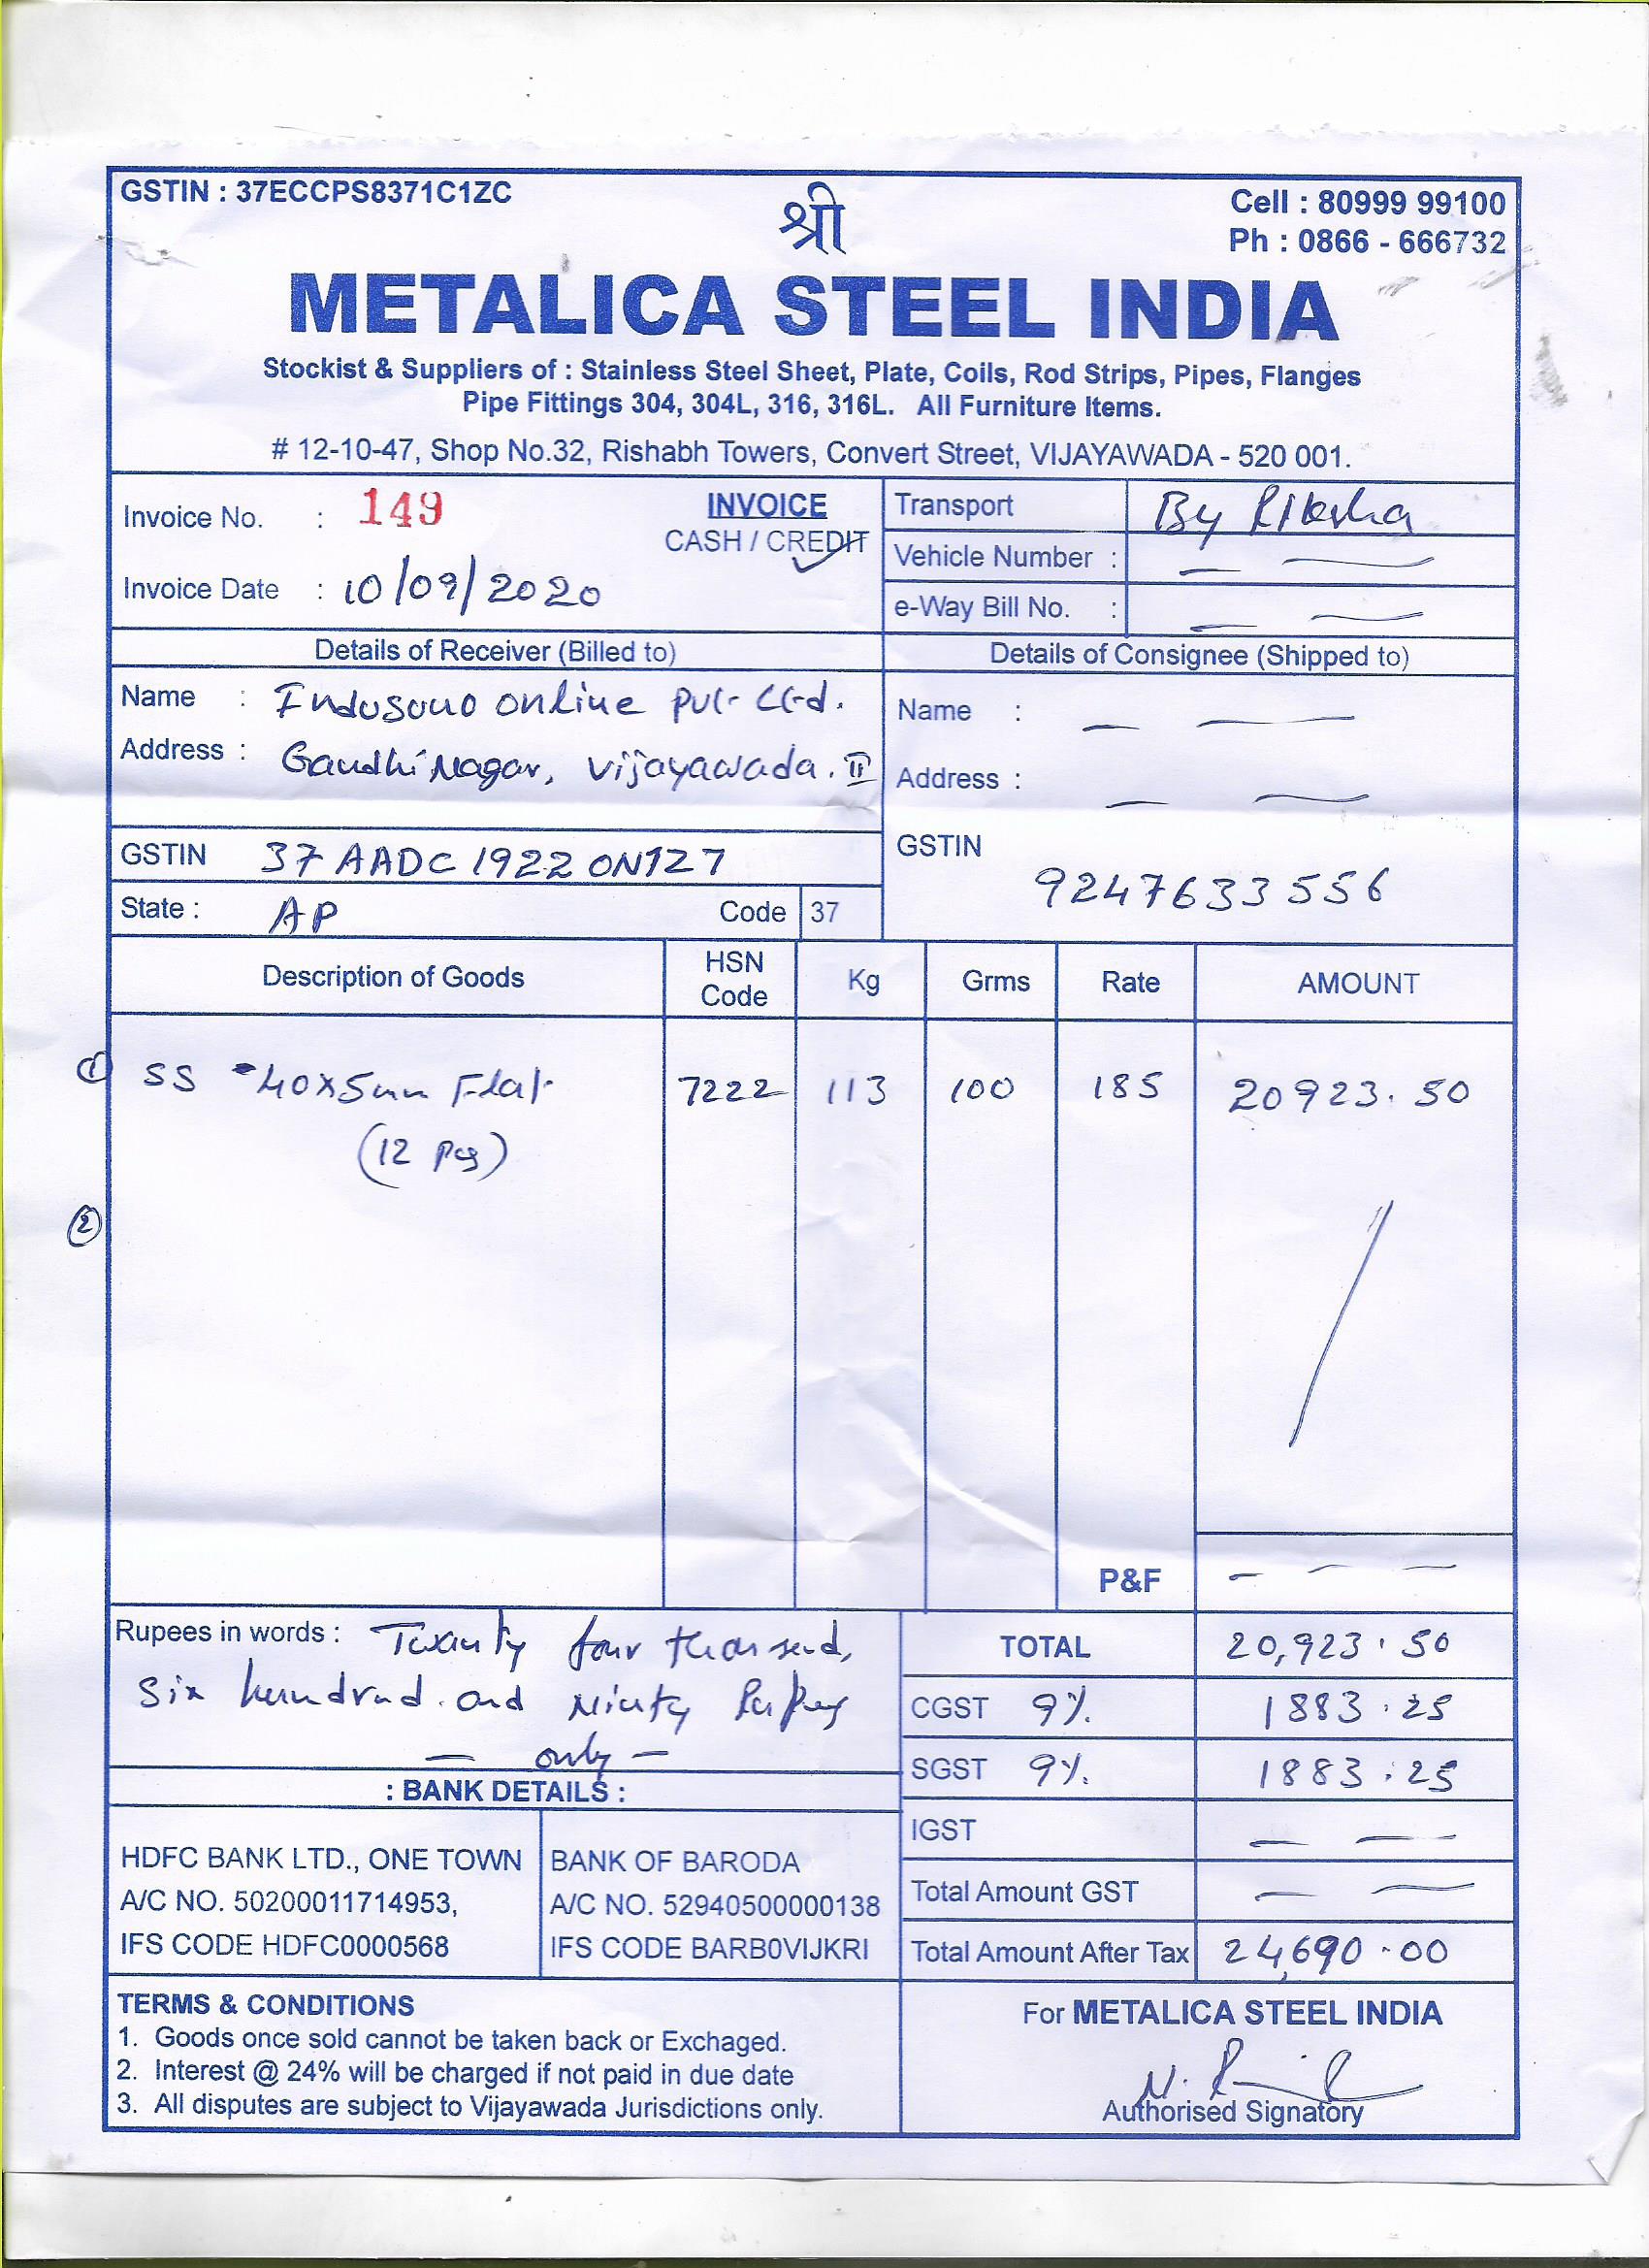 GSTIN : 37ECCPS8371C1ZC
श्री
Cell : 80999 99100
Ph : 0866 - 666732
METALICA STEEL INDIA
Stockist & Suppliers of : Stainless Steel Sheet, Plate, Coils, Rod Strips, Pipes, Flanges
Pipe Fittings 304, 304L, 316, 316L. All Furniture Items.
# 12-10-47, Shop No.32, Rishabh Towers, Convert Street, VIJAYAWADA - 520 001.
Invoice No. : 149
INVOICE
CASH / CREDIT
Invoice Date : 10/09/2020
Transport By
Vehicle Number : — —
e-Way Bill No. : — —
Details of Receiver (Billed to)
Name : online Pvt Ltd.
Address : Gandhi Nagar, Vijayawada. II
GSTIN 37AADC19220N1Z7
State : AP Code 37
Details of Consignee (Shipped to)
Name : — —
Address : — —
GSTIN
9247633556
Description of Goods HSN Code Kg Grms Rate AMOUNT
① SS 40x5mm Flat 7222 113 100 185 20923.50
(12 Pcs)
②
P&F - - -
Rupees in words : Twenty four thousand,
Six hundred and Ninty
— only —
TOTAL 20,923.50
CGST 9% 1883.25
SGST 9% 1883.25
IGST — —
Total Amount GST — —
Total Amount After Tax 24,690.00
: BANK DETAILS :
HDFC BANK LTD., ONE TOWN
A/C NO. 50200011714953,
IFS CODE HDFC0000568
BANK OF BARODA
A/C NO. 52940500000138
IFS CODE BARB0VIJKRI
TERMS & CONDITIONS
1. Goods once sold cannot be taken back or Exchaged.
2. Interest @ 24% will be charged if not paid in due date
3. All disputes are subject to Vijayawada Jurisdictions only.
For METALICA STEEL INDIA
Authorised Signatory